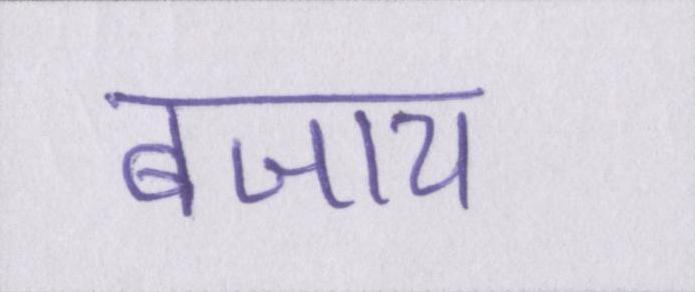 बजाय